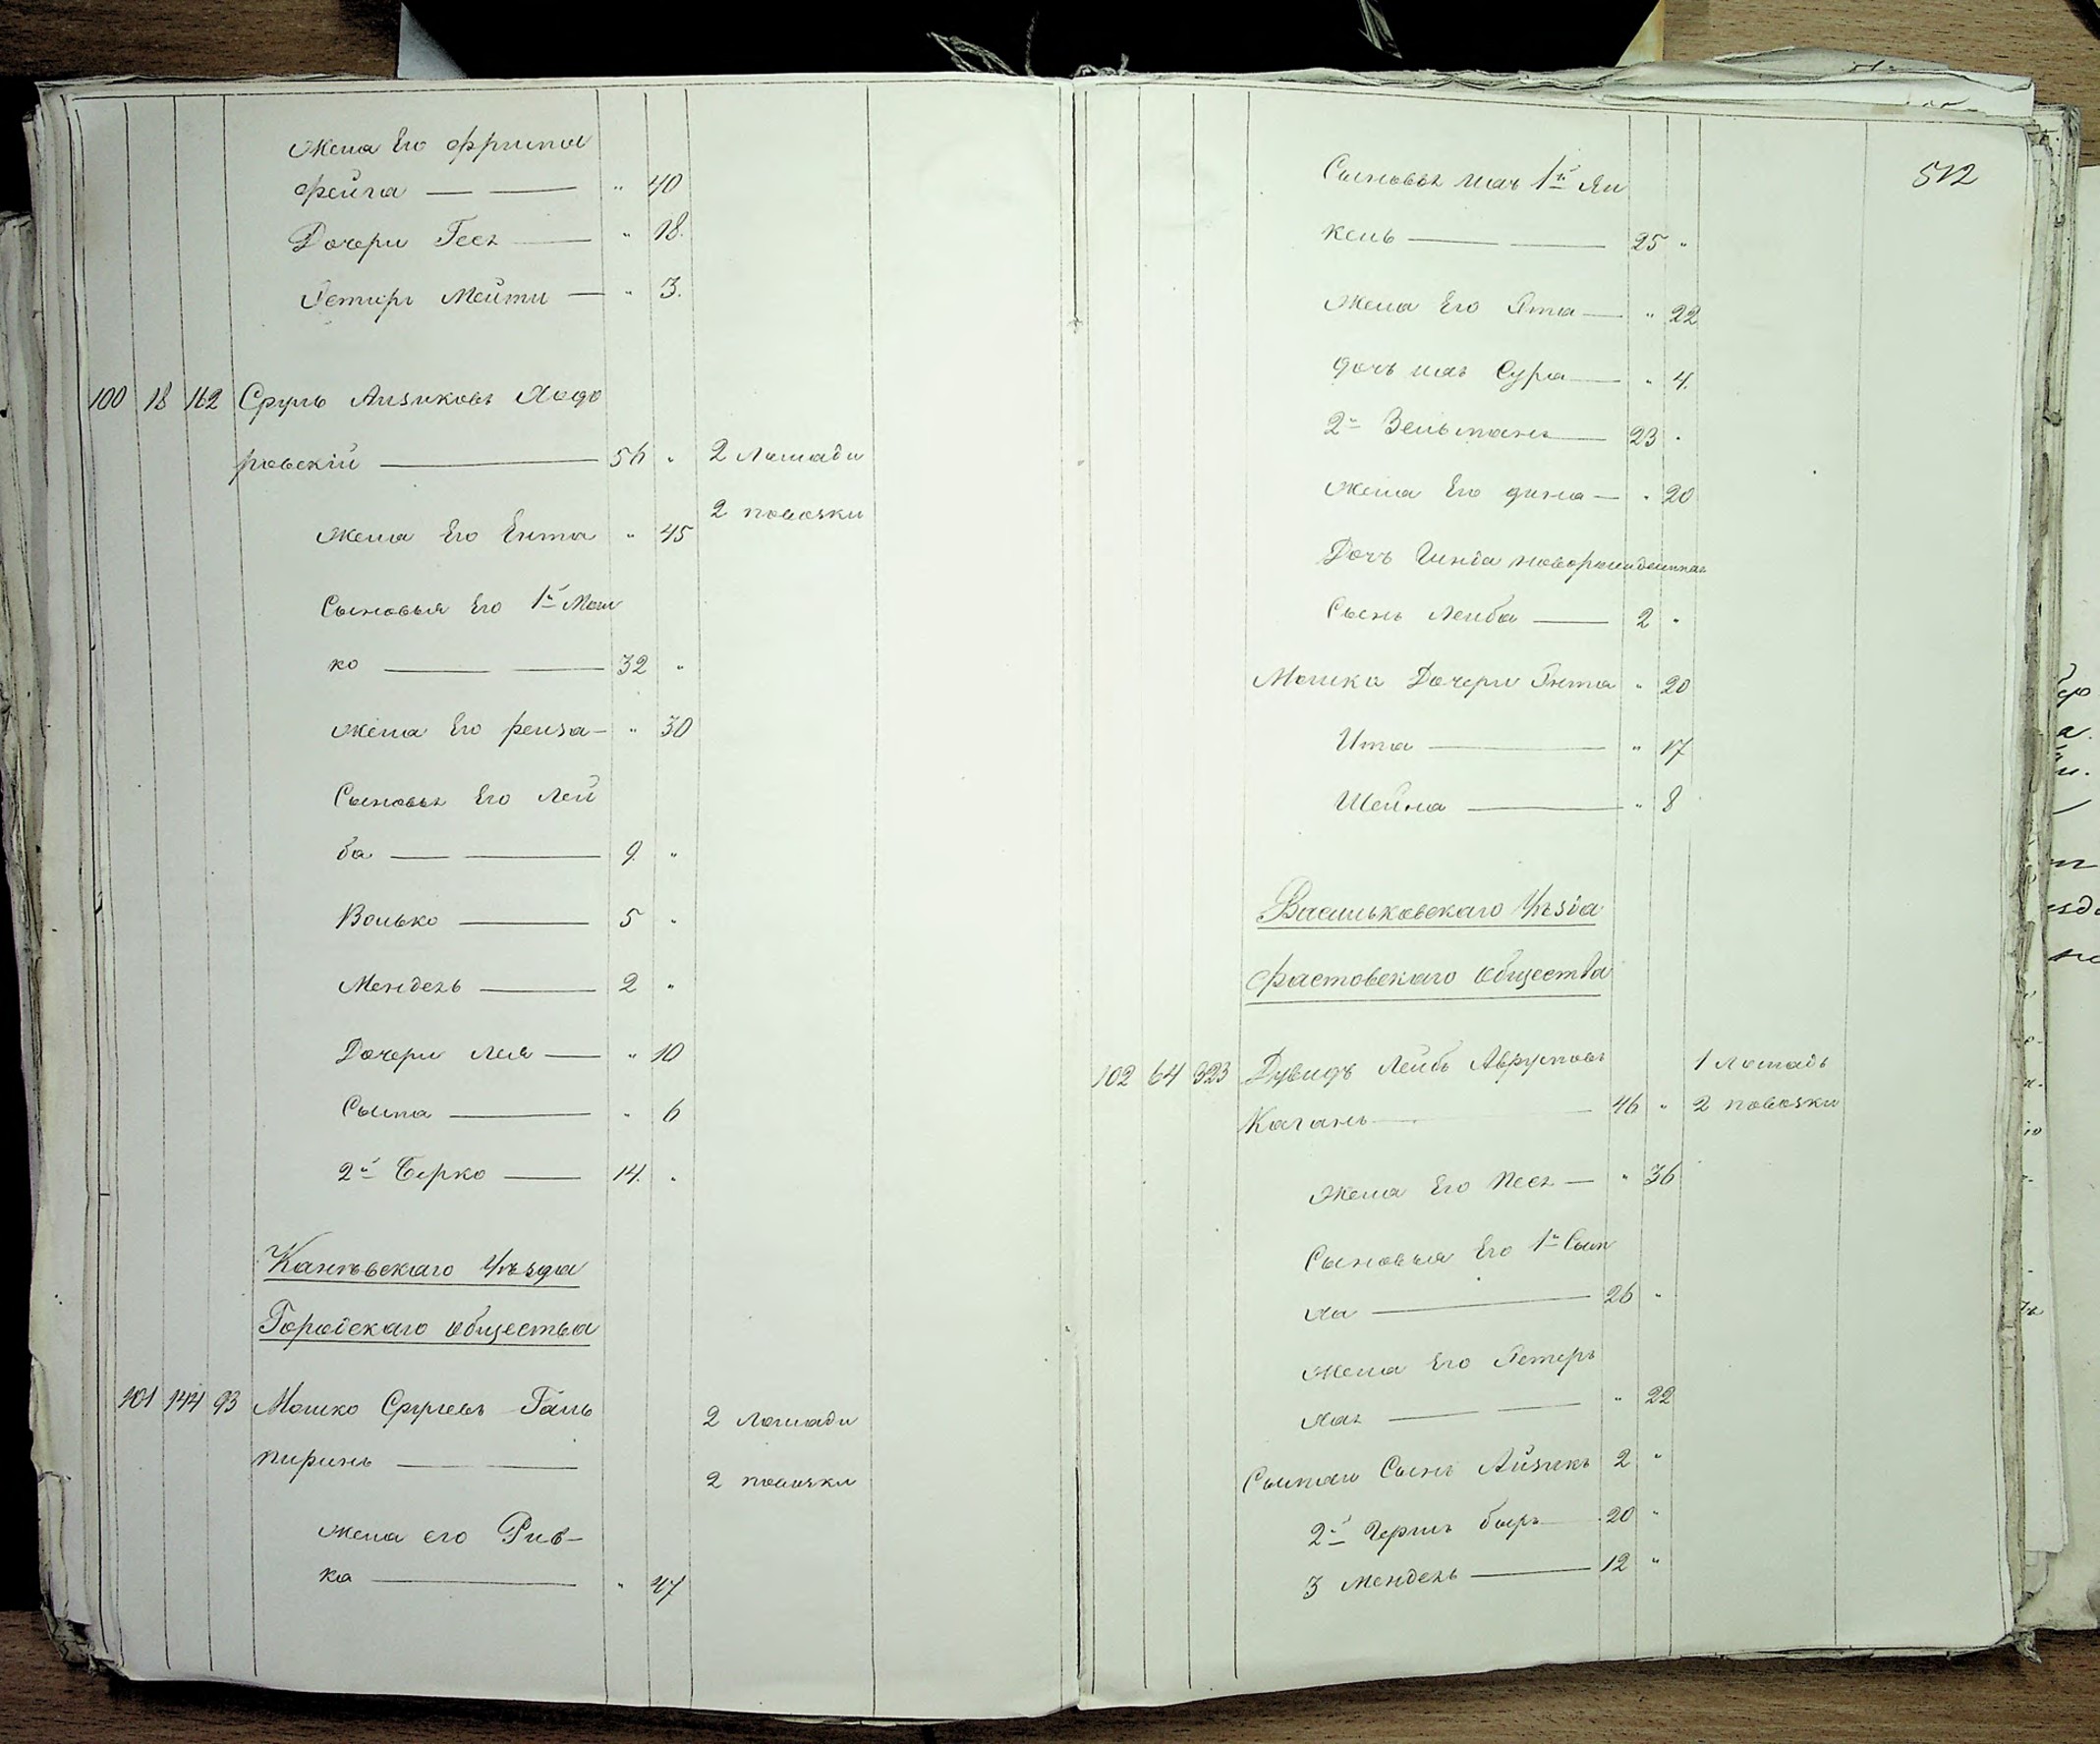 Жена Его Фрима
Фейга — — " 40
Дочери Геся — " 18.
Эстеръ Мейти — " 3.
100 18 162 Сруль Айзиковъ Ходо
ровскій — 56 " 2 лошади
2 повозки
Жена Его Ента " 45
Сыновья Его 1й Мош
ко — — 32 "
Жена Его Рейза — " 30
Сыновья Его Лей
ба — — 9 "
Волько — 5 "
Мендель — 2 "
Дочери Лея — " 10
Сыма — " 6
2й Берко — 14. "
Каневскаго Уѣзда
Городскаго общества
101 144 93 Мошко Срулевъ Галь
перинъ — — 2 лошади
2 повозки
Жена его Рив-
ка — " 47
512
Сыновья ихъ 1й Ян
кель — — 25 "
Жена Его Эта — " 22
дочь ихъ Сура — " 4.
2й Зельманъ — 23 "
Жена Его дина — " 20
Дочь Гинда новорожденная
Сынъ Лейба — 2 "
Мошка Дочери Энта " 20
Ита — " 17
Шейна — " 8
Васильковскаго Уѣзда
Фастовскаго общества
102 64 323 Дувидъ Лейбъ Аврумовъ 1 лошадь
Каганъ — 46 " 2 повозки
Жена Его Песя — " 36
Сыновья Его 1й Сым
ха — 26 "
Жена Его Эстеръ
Хая — — " 22
Сымхи Сынъ Айзикъ 2 "
2й Гершъ беръ — 20 "
3 Мендель — 12 "